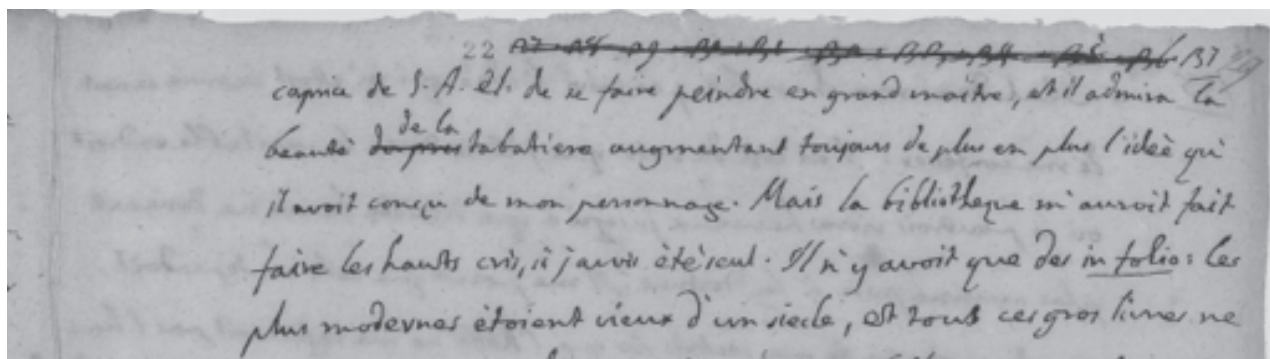 22 137
caprice de S. A. El. de se faire peindre en grand maitre, et il admira la
beauté de la tabatiere augmentant toujours de plus en plus l'idèe qu'
il avoit conçu de mon personnage. Mais la bibliotheque m'auroit fait
faire les hauts cris, si j'avois étè seul. Il n'y avoit que des in folio: les
plus modernes ètoient vieux d'un siecle, et tout ces gros livres ne